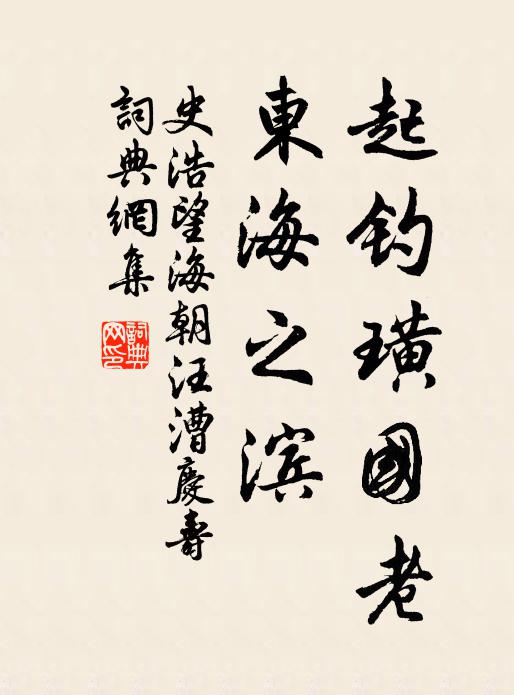 起钓璜國老
東海之滨
史浩望海朝汪漕慶壽
詞典網集
詞典網印